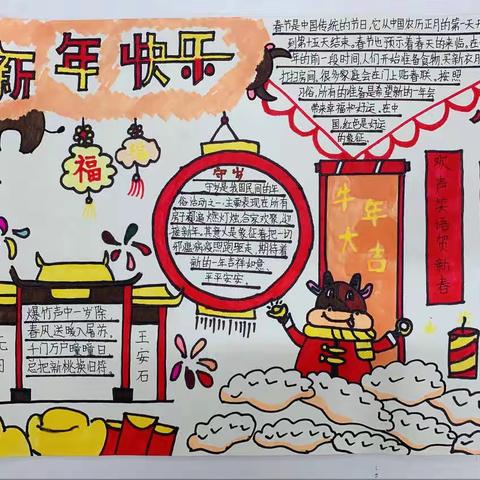 新年快乐
春节是中国传统的节日,它从中国农历正月的第一天开
到第十五天结束。春节也预示着春天的来临。在
年的前一段时间人们开始准备食物,买新衣服
打扫房间,很多家庭会在门上贴春联。按照
习俗,所有的准备是希望新的一年会
带来幸福和好运。在中
国,红色是好运
的象征。
福
福
守岁
守岁是我国民间的年
俗活动之一,主要表现在所有
房子都遍燃灯烛,合家欢聚,迎
接新年。其意义是象征着把一切
邪瘟病疫照跑驱走,期待着
新的一年吉祥如意,
平平安安。
牛年
大吉
欢声笑语贺新春
元日
爆竹声中一岁除,
春风送暖入屠苏。
千门万户曈曈日,
总把新桃换旧符。
王安石